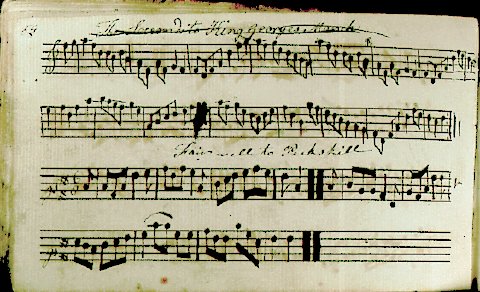 The Second to King Georges March
Fair well to Peekskill